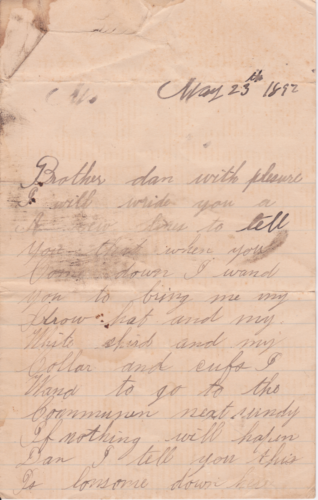 May 23th 1892
Brother dan with plesure
I will wride you a
A few lines to tell
you that when you
Come down I wand
you to bring me my
Strow hat and my
White shird and my
Collar and cufs I
Wand to go to the
next sundy
If nothing will hapen
Dan I tell you this
Is lonsome down here